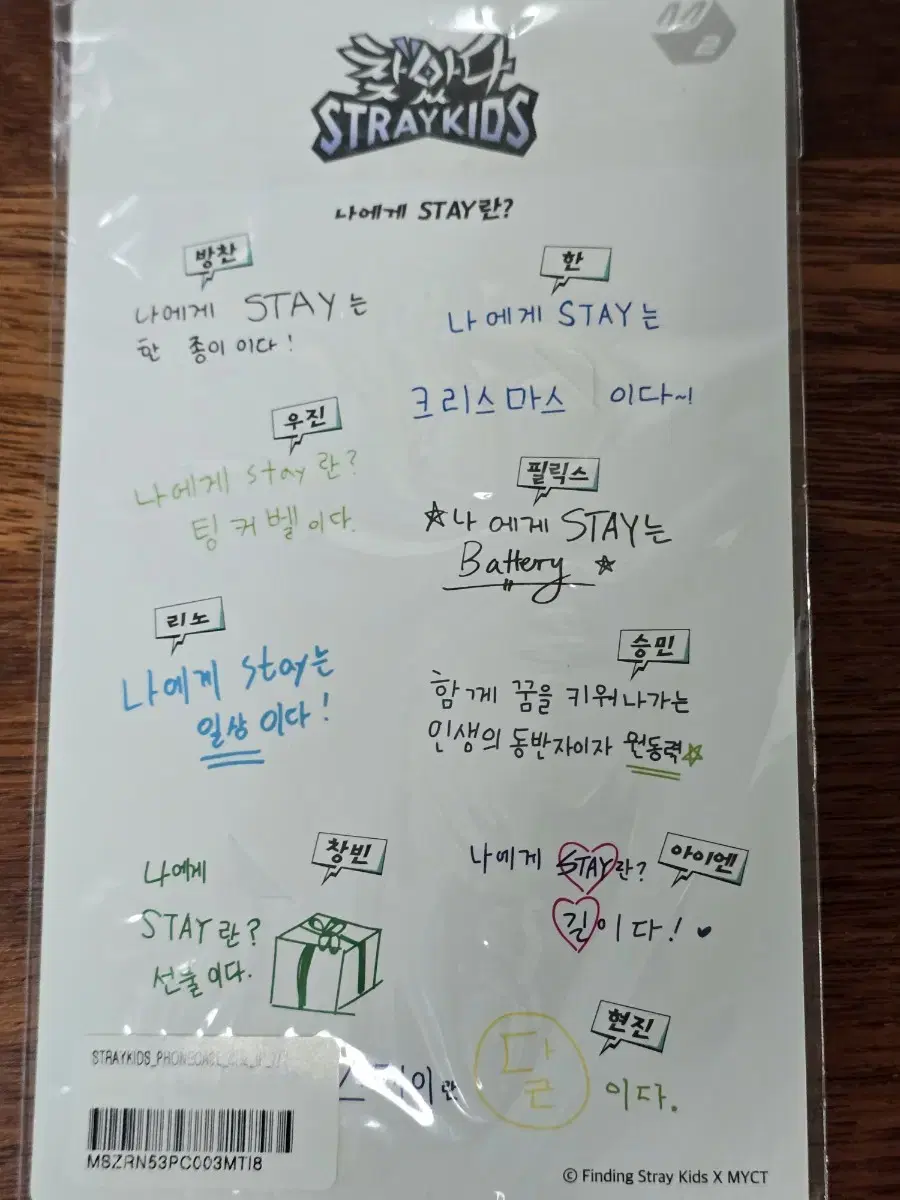 찾았다
STRAYKIDS
M2
나에게 STAY란?
방찬
나에게 STAY는
한 종이이다!
한
나에게 STAY는
크리스마스 이다~!
우진
나에게 stay란?
팅커벨이다.
필릭스
☆나에게 STAY는
Battery ☆
리노
나에게 stay는
일상이다!
승민
함께 꿈을 키워나가는
인생의 동반자이자 원동력☆
창빈
나에게
STAY란?
선물이다.
아이엔
나에게 STAY란?
길이다! ♥
현진
이란
달 이다.
MSZRN53PC003MTI8
© Finding Stray Kids X MYCT